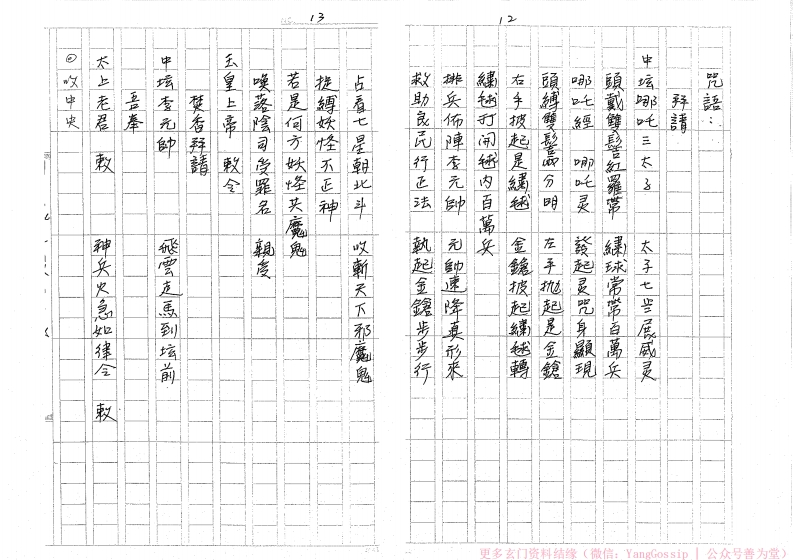 12
咒語：
拜請
中坛哪吒三太子 太子七岁展威灵
頭戴雙髻紅羅帶 繡球常帶百萬兵
哪吒經 哪吒灵 發起灵咒身顯現
頭縛雙髻鬲分明 左手抛起是金鎗
右手披起是繡毬 金鎗披起繡毬轉
繡毬打開毬内百萬兵
排兵佈陣李元帥 元帥速降真形來
救助良民行正法 執起金鎗步步行
13
占看七星朝北斗 收斬天下邪魔鬼
捉縛妖怪不正神
若是何方妖怪共魔鬼
喚落陰司受罪名 親受
玉皇上帝 敕令
焚香拜請
中坛李元帥 飛雲走馬到坛前
吾奉
太上老君 敕 神兵火急如律令 敕
⊙收中央
更多玄门资料结缘（微信：YangGossip | 公众号善为堂）